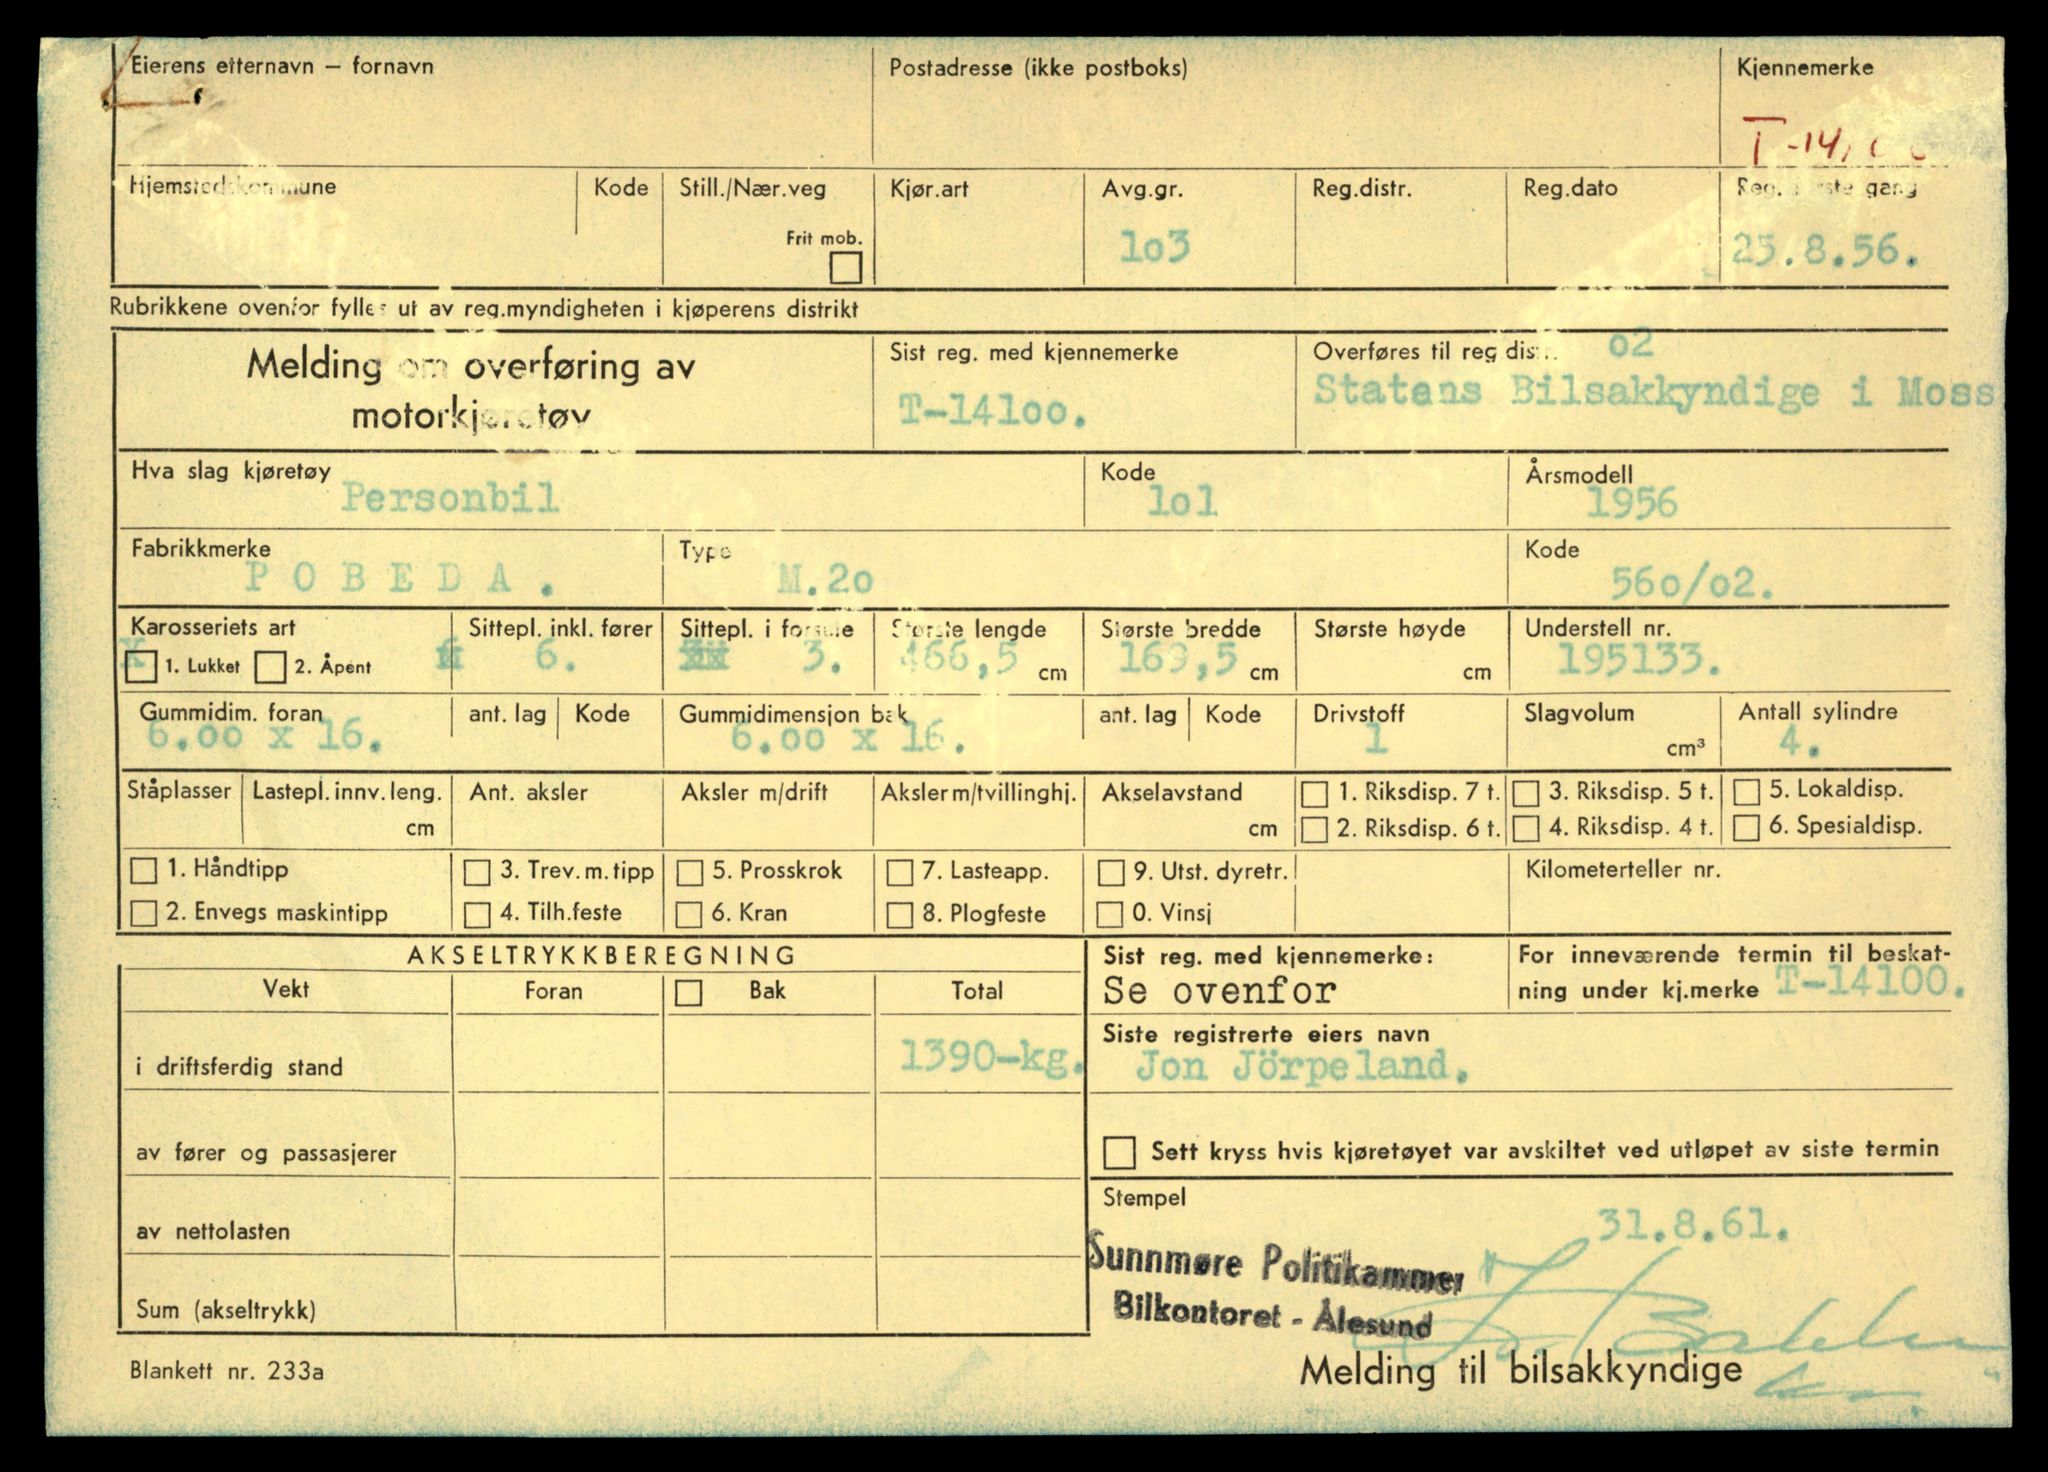 Eierens etternavn – fornavn Postadresse (ikke postboks) Kjennemerke
T-14100
Hjemstedskommune Kode Still./Nær.veg Kjør.art Avg.gr. Reg.distr. Reg.dato Reg. første gang
Frit mob. lo3 25.8.56.
Rubrikkene ovenfor fylles ut av reg.myndigheten i kjøperens distrikt
Melding om overføring av motorkjøretøy
Sist reg. med kjennemerke
T-14loo.
Overføres til reg distr. o2
Statens Bilsakkyndige i Moss
Hva slag kjøretøy Kode Årsmodell
Personbil lol 1956
Fabrikkmerke Type Kode
P O B E D A . M.2o 56o/o2.
Karosseriets art Sittepl. inkl. fører Sittepl. i forsete Største lengde Største bredde Største høyde Understell nr.
X 1. Lukket 2. Åpent 6. 3. 466,5 cm 169,5 cm cm 195133.
Gummidim. foran ant. lag Kode Gummidimensjon bak ant. lag Kode Drivstoff Slagvolum Antall sylindre
6.00 x 16. 6.00 x 16. 1 cm³ 4.
Ståplasser Lastepl. innv. leng. Ant. aksler Aksler m/drift Aksler m/tvillinghj. Akselavstand 1. Riksdisp. 7 t. 3. Riksdisp. 5 t. 5. Lokaldisp.
cm cm 2. Riksdisp. 6 t. 4. Riksdisp. 4 t. 6. Spesialdisp.
1. Håndtipp 3. Trev. m. tipp 5. Prosskrok 7. Lasteapp. 9. Utst. dyretr. Kilometerteller nr.
2. Envegs maskintipp 4. Tilh.feste 6. Kran 8. Plogfeste 0. Vinsj
AKSELTRYKKBEREGNING
Vekt Foran Bak Total
i driftsferdig stand 1390-kg.
av fører og passasjerer
av nettolasten
Sum (akseltrykk)
Blankett nr. 233a
Sist reg. med kjennemerke:
Se ovenfor
For inneværende termin til beskat-
ning under kj.merke T-14100.
Siste registrerte eiers navn
Jon Jörpeland.
Sett kryss hvis kjøretøyet var avskiltet ved utløpet av siste termin
Stempel
31.8.61.
Sunnmøre Politikammer
Bilkontoret - Ålesund
Melding til bilsakkyndige